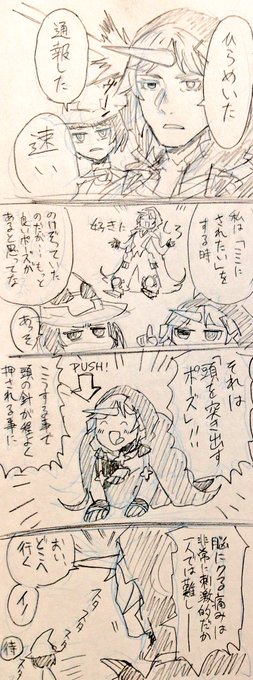 ひらめいた
通報した
速い
私は「ミミに
されたい」を
する時
好きに
しろ
のけぞっていた
のだが…もっと
良いポーズが
あると思ってな
あっそ
それは
「頭を突き出す
ポーズ」!!
PUSH!
こうする事で
頭の針が程よく
押される事に
脳にクる痛みは
非常に刺激的だが
一人では難し
おい
どこへ
行く
イノ
スタ
スタ
スタ
スタ
待